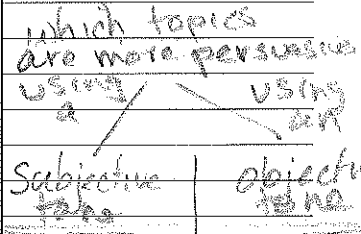 which topics
are more persuasive
using using
a an
Subjective objectiv
tone tone